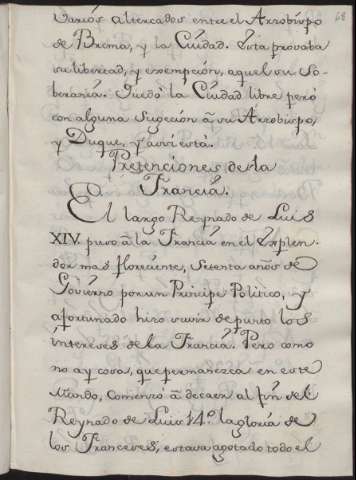 68
varios altercados entre el Arzobispo
de Brema, y la Ciudad. Esta provaba
su libertad, y exempción, aquel su So-
beranía. Quedó la Ciudad libre peró
con alguna sugecion á su Arzobispo,
y Duque, y aún está.
Pretenciones de la
Francia.
El largo Reynado de Luis
XIV. puso á la Francia en el explen-
dor mas floreciente, setenta años de
Govierno por un Principe Politico, y
afortunado hizo suvir de punto los
intereses de la Francia. Pero como
no ay cosa, que permanezca en este
Mundo, comenzó á decaer al fin del
Reynado de Luis 14º la gloria de
los Franceses, estava agotado todo el